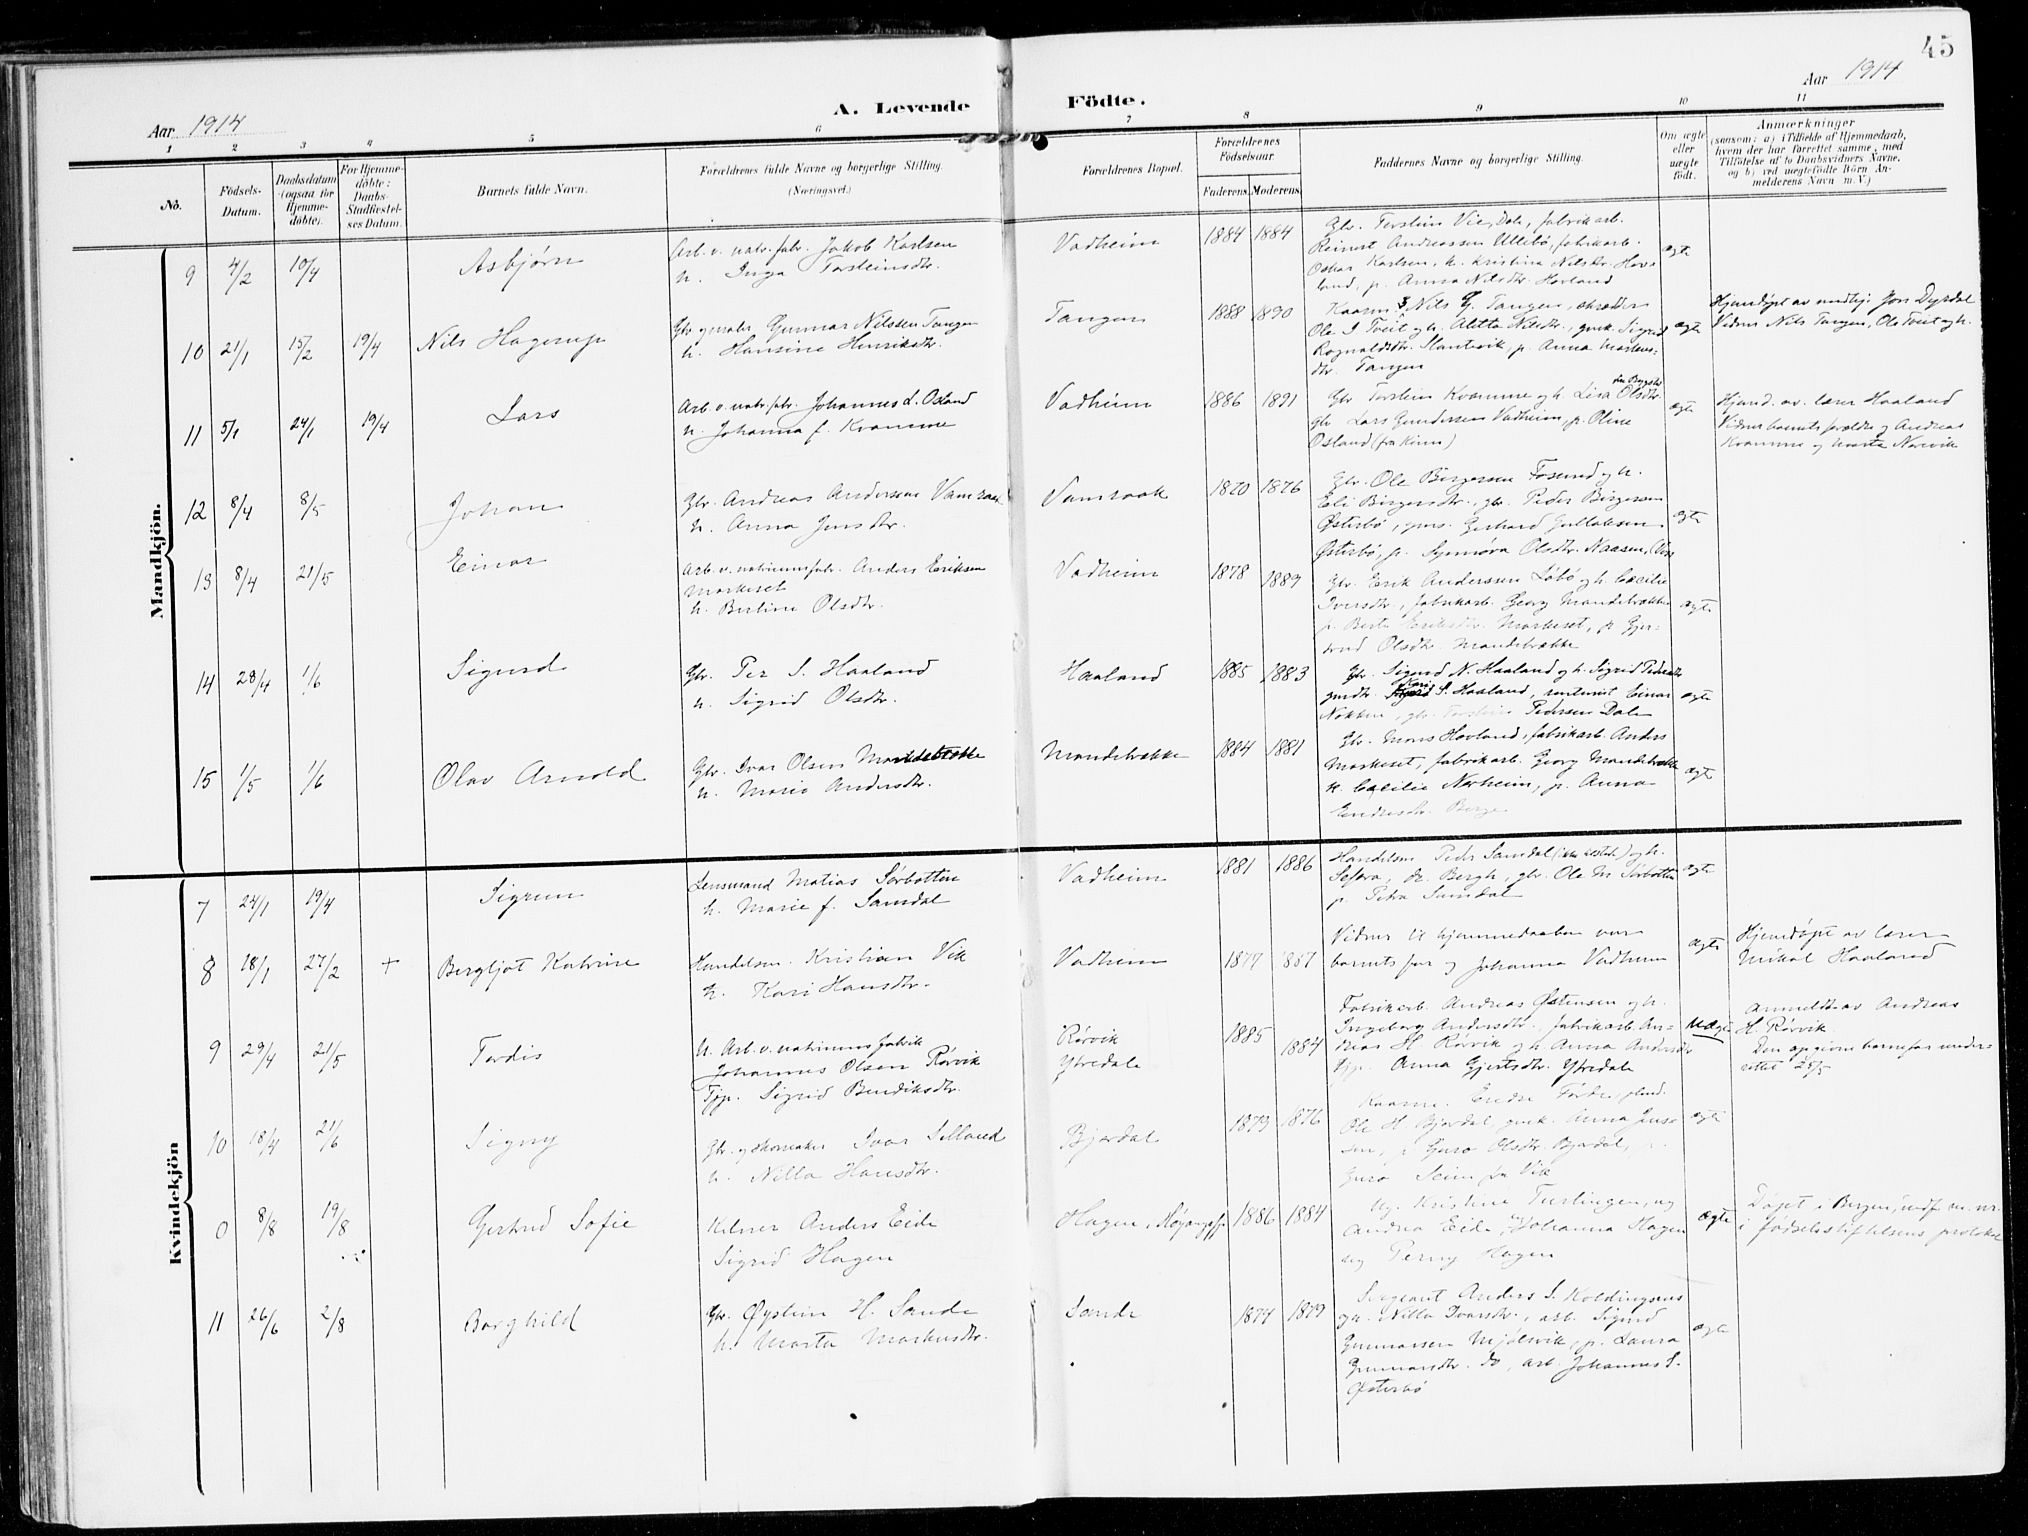 45
Aar 1914
A. Levende Födte.
Aar 1914
1 2 3 4 5 6 7 8 9 10 11
No.
Födsels-Datum.
Daabsdatum (ogsaa for Hjemme-döbte).
For Hjemme-döbte: Daabs-Stadfæstel-ses Datum.
Barnets fulde Navn.
Forældrenes fulde Navne og borgerlige Stilling.
(Næringsvei.)
Forældrenes Bopæl.
Forældrenes Födselsaar.
Faderens. Moderens.
Faddernes Navne og borgerlige Stilling.
Om ægte eller uægte födt.
Anmærkninger
(saasom: a) i Tilfælde af Hjemmedaab,
hvem der har forrettet samme, med
Tilföielse af to Daabsvidners Navne,
og b) ved uægtefödte Börn An-
melderens Navn m. V.)
Mandkjön.
9 4/2 10/4 Asbjørn
Arb. v. natr. fabr. Jakob Karlsen
h. Inga Torsteinsdtr.
Vadheim 1884 1884
Gbr. Torstein Vie, Dale, fabrikarb.
Reinert Andreassen Ullebö, fabrikarb.
Oskar Karlsen, h. Kristina Nilsdtr. Hav-
land, p. Anna Nilsdtr. Havland
ægte
10 21/1 15/2 19/4 Nils Hagerup
Gbr og maler Gunnar Nilssen Tangen
h. Hansine Henriksdtr.
Tangen 1888 1890
Nils G. Tangen, skrædder
Ole I Tveit og h. Alette Nilsdtr., gmk. Sigrid
Rognaldsdtr. p. Anna Martens-
dtr. Tangen
ægte
Hjemdøpt av Jon Dyrdal
Vidner Nils Tangen, Ole Tveit og h.
11 5/1 24/1 19/4 Lars
Arb. v. natr. fabr. Johannes L. Osland
h. Johanna f. Kvamme
Vadheim 1886 1891
Gbr Torstein Kvamme og h. Lisa Olsdtr.
gbr Lars Gundersen Vadheim, p. Oline
Osland (fra Kinn)
ægte
Hjemd. av lærer Haaland
Vidner barnets forældre og Andreas
Kvamme og Marta Norevik
12 8/4 8/5 Johan
Gbr. Andreas Anderssen Vamraak
h. Anna Jensdtr.
Vamraak 1870 1876
Gbr. Ole Börgersen Fossund og h.
Eli Börgersdtr., gbr. Peder Börgersen
Østerbø, gms. Gerhard Gullaksen
Østerbø, p. Synnøva Olsdtr. Naasen,
ægte
13 8/4 21/5 Einar
Arb. v. natriumsfabr. Anders Eriksen
Markeset
h. Bertine Olsdtr.
Vadheim 1878 1889
Gbr. Erik Anderssen Löbö og h. Cecilie
Iversdtr., fabrikarb. Georg Mandelvække
p. Berta Eriksdtr. Markeset, p. Gjer-
trud Olsdtr. Mandelvække
ægte
14 28/4 1/6 Sigurd
Gbr. Per S. Haaland
h. Sigrid Olsdtr.
Haaland 1885 1883
Gbr. Sigurd N. Haaland og h. Sigrid Pedersdtr
Kari S. Haaland, rentenist Einar
Nokken, gbr. Torstein Pedersen Dale
ægte
15 1/5 1/6 Olav Arnold
Gbr. Ivar Olsen Mandelvække
h. Marie Andersdtr.
Mandelvække 1884 1881
Gbr. Mons Hovland, fabrikarb. Anders
Markeset, fabrikarb. Georg Mandelvække
h. Cecilie Norheim, p. Anna
Endresdtr. Berge
ægte
Kvindekjön
7 24/1 19/4 Sigrun
Lensmand Matias Sörbotten
h. Marie f. Samdal
Vadheim 1881 1886
Handelsm Peder Samdal (ikke tilstede) og h.
Bergh, gbr. Ole M Sörbotten
p. Petra Samdal
ægte
8 18/1 27/2 + Bergljot Katrine
Handelsm. Kristian Vik
h. Kari Hansdtr.
Vadheim 1877 1887
Vidner til hjemmedaaben var
barnets far og Johanna Vadheim
ægte
Hjemdöpt av lærer
Mikal Haaland
9 29/4 21/5 Tordis
U. Arb. v. natriumsfabrik
Johannes Olsen Rörvik
Tjp. Sigrid Bendiksdtr.
Rörvik
Ytredale
1885 1884
Fabrikarb. Andreas Østensen og h.
Ingeborg Andersdtr., fabrikarb. An-
dreas H Rörvik og h. Anna Andersdtr
Tjp. Anna Gjertsdtr. Ytredale
Uægte
Anmeldt av Andreas
H. Rörvik
Den opgivne barnefar under-
rettet 25/5
10 18/4 21/6 Signy
Gbr. og skomaker Ivar
h. Nilla Hansdtr.
Bjordal 1879 1876
Kaarm. Endre Förde,
Ole H Bjordal, gmk. Anna Jens-
sen, p Guro Olsdtr. Bjordal, p.
Guro Seim fra Vik
ægte
0 8/8 19/8 Gertrud Sofie
Kelner Anders Eide
Sigrid Hagen
Hagen, Høyangsfj. 1886 1884
Kristine
Andrea Eide, Johanna Hagen
og Perny Hagen
ægte
Døpt i Bergen, indf. m. nr.
i fødselsstiftelsens protokol
11 26/6 2/8 Borghild
Gbr. Øystein H. Sande
h. Marta Markusdtr.
Sande 1874 1879
Sergeant Anders S. Koldingsnes
og h. Nilla Ivarsdtr., arb. Sigurd
Gunnarsen Mjølsvik, p. Laura
Gunnarsdtr. do, arb. Johannes S.
Østerbø
ægte